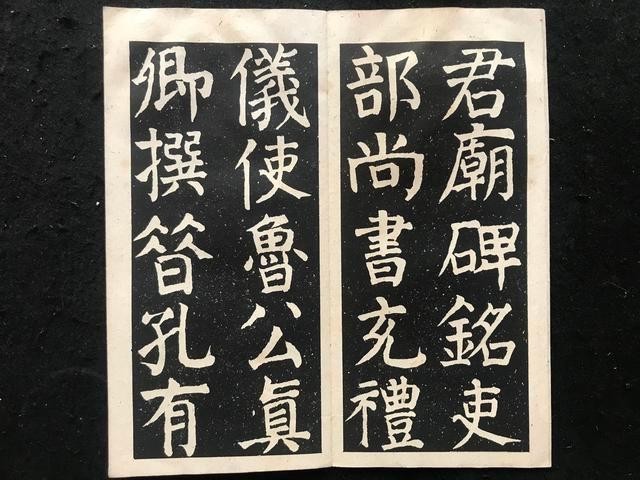 君廟碑銘吏
部尚書充禮
儀使魯公眞
卿撰䇲孔有